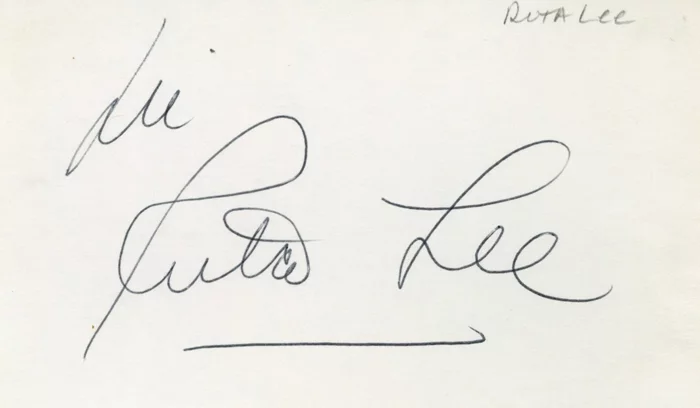 RUTA LEE
Hi
Ruta Lee